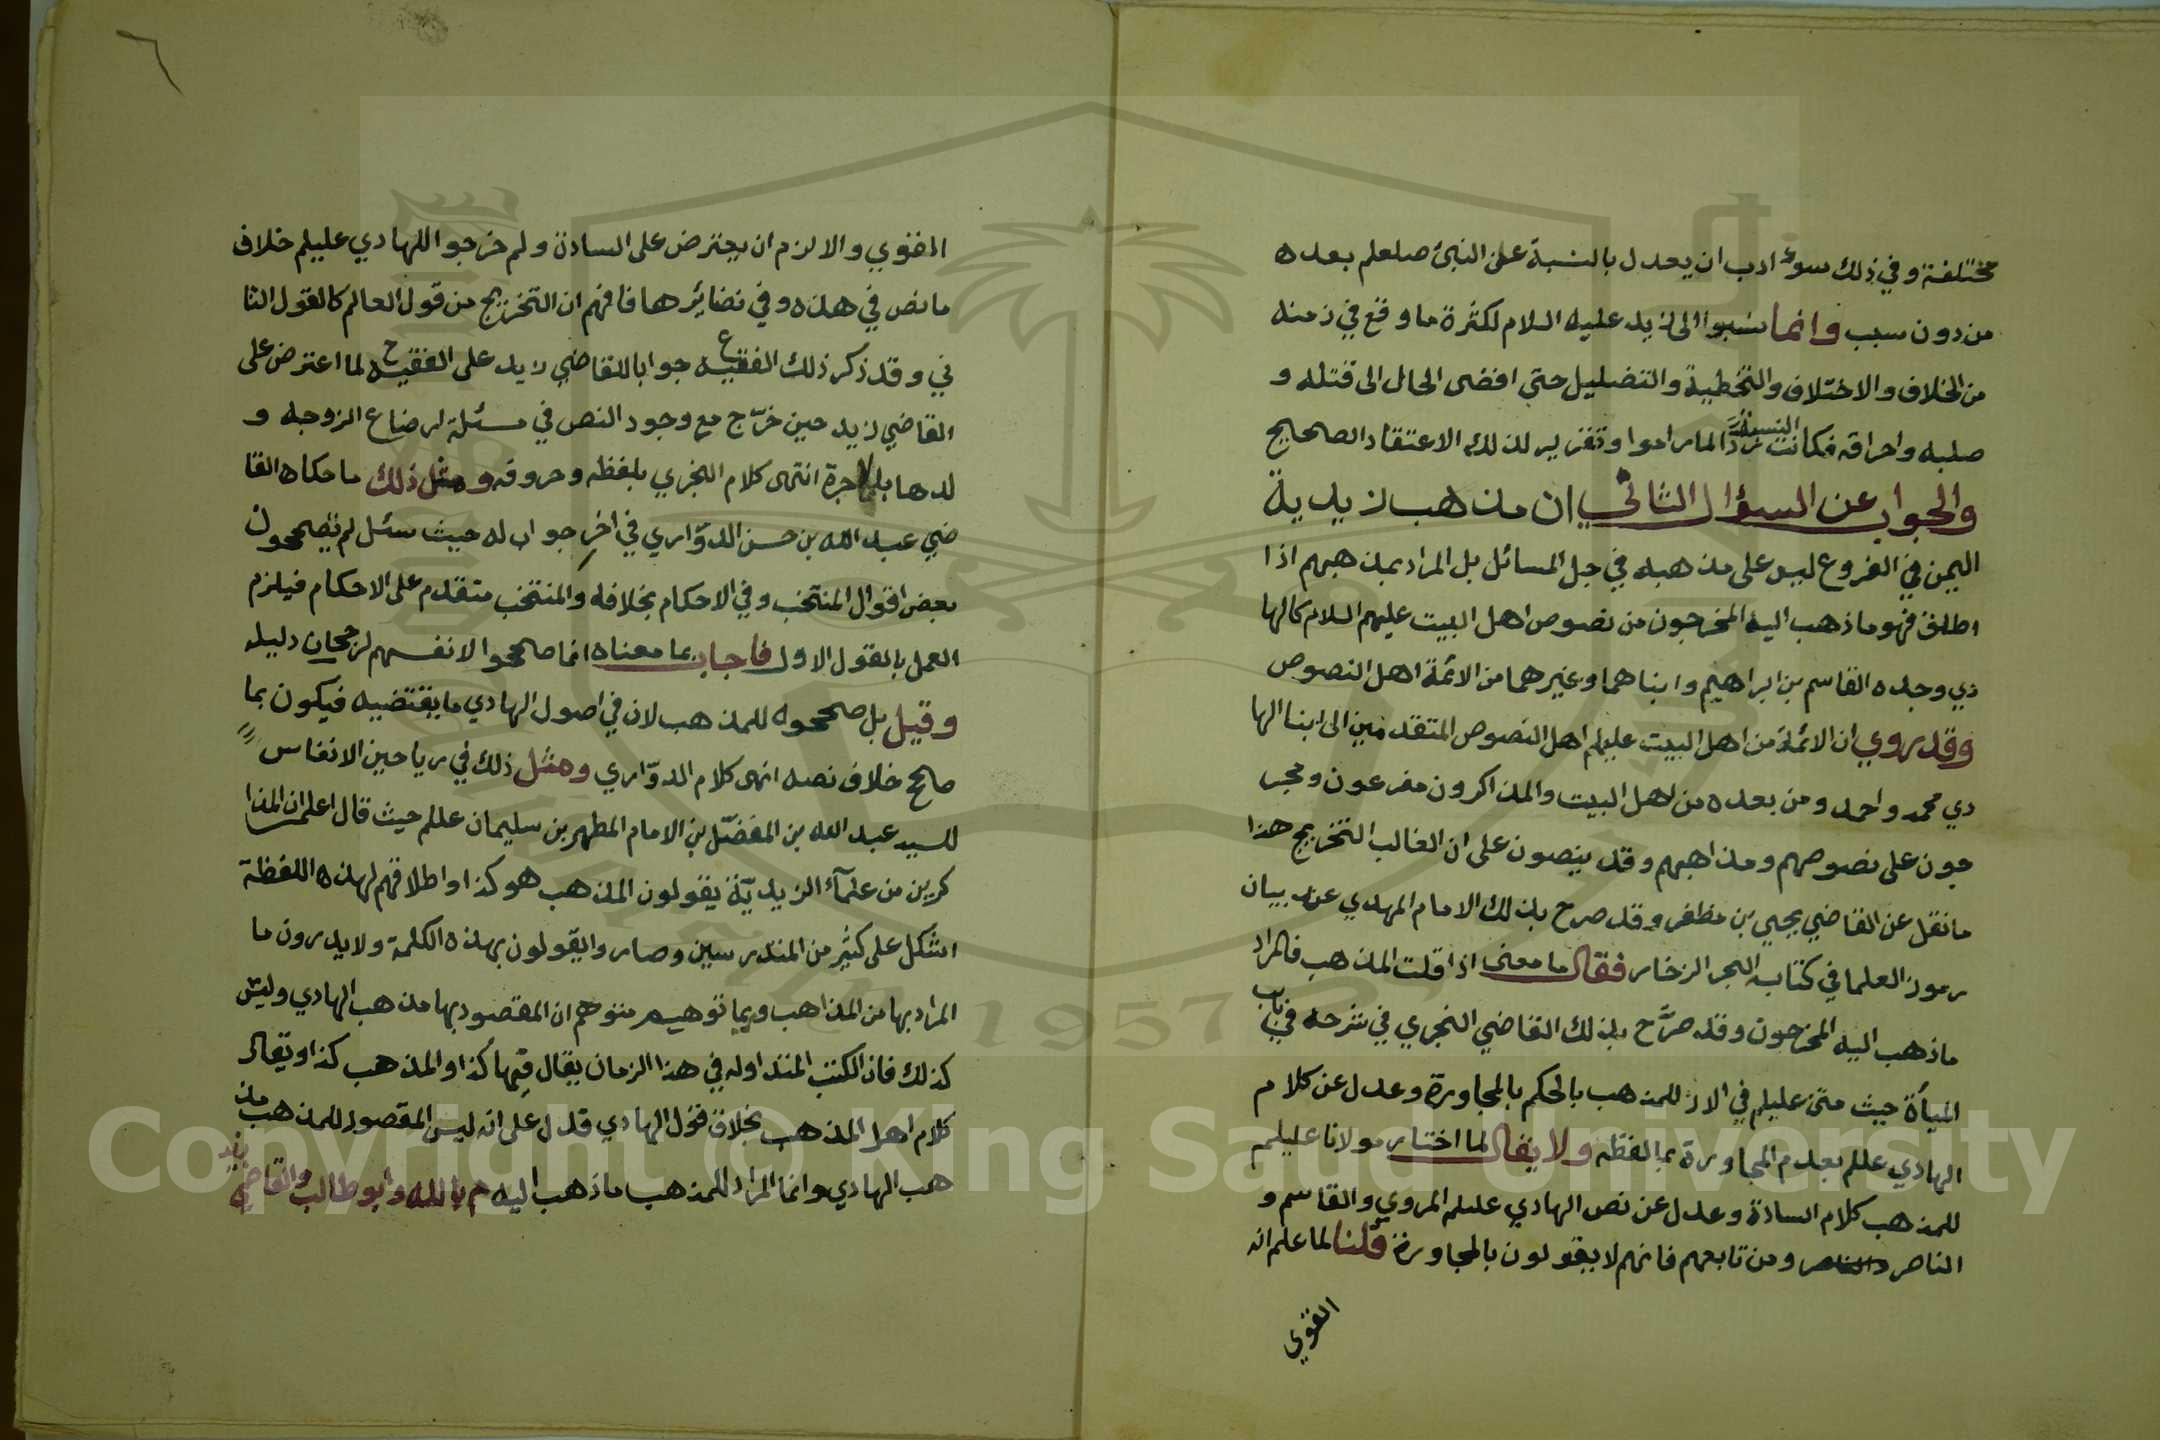 مختلفة وفي ذلك سوء ادب ان يعدل بالنسبة على النبئ صلعلم بعده
من دون سبب وانما نسبوا الى زيد عليه السلام لكثرة ما وقع في زمنه
من الخلاف والاختلاف والتخطية والتضليل حتى افضى الحال الى قتله و
صلبه واحراقه فكانت النسبة ردًا لما راموا وتقرير لذلك الاعتقاد الصحيح
والجواب عن السؤال الثاني ان مذهب زيدية
اليمن في الفروع ليس على مذهبه في جل المسائل بل المراد بمذهبهم اذا
اطلق فهو ما ذهب اليه المخرجون من نصوص اهل البيت عليهم السلام كالها
دي وجده القاسم بن ابراهيم وابناهما وغيرهما من الائمة اهل النصوص
وقد روي ان الائمة من اهل البيت عليلم اهل النصوص المتقدمين الى ابنا الها
دي محمد واحمد ومن بعده من اهل البيت والمذاكرون مفرعون ومخر
جون على نصوصهم ومذاهبهم وقد ينصون على ان الغالب التخريج هذا
ما نقل عن القاضي يحيى بن مظفر وقد صرح بذلك الامام المهدي عند بيان
رموز العلما في كتاب البحر الزخار فقال ما معنى اذا قلت المذهب فالمراد
ما ذهب اليه المخرجون وقد صرَّح بذلك القاضي النجري في شرحه في باب
المياة حيث مشى عليلم في الاز للمذهب بالحكم بالمجاورة وعدل عن كلام
الهادي عللم بعدم المجاورة بما لفظه ولا يقال لما اختار مولانا عليلم
للمذهب كلام السادة وعدل عن نص الهادي عليلم المروي والقاسم و
الناصر ومن تابعهم فانهم لا يقولون بالمجاورة قلنا لما علم انه
القوي
القوي والا لزم ان يعترض على السادة ولم خرجوا للهادي عليلم خلاف
ما نص في هذه وفي نضائرها فافهم ان التخريج من قول العالم كالقول الثا
ني وقد ذكر ذلك الفقيه ع جوابا للقاضي زيد على الفقيه ح لما اعترض على
القاضي زيد حين خرّج مع وجود النص في مسئلة رضاع الزوجه و
لدها بلا اجرة انتهى كلام النجري بلفظه وحروفه ومثل ذلك ما حكاه القا
ضي عبد الله بن حسن الدوّاري في اخر جواب له حيث سئل لم يصححون
بعض اقوال المنتخب وفي الاحكام بخلافه والمنتخب متقدم على الاحكام فيلزم
العمل بالقول الاول فاجاب بما معناه انما صححوا لانفسهم لرجحان دليله
وقيل بل صححوه للمذهب لان في اصول الهادي ما يقتضيه فيكون بما
صالح خلاف نصه انهى كلام الدوّاري ومثل ذلك في رياحين الانفاس
للسيد عبد الله بن المفضّل بن الامام المطهر بن سليمان عللم حيث قال اعلم ان المذا
كرين من علمآء الزيديّة يقولون المذهب هو كذا واطلاقهم لهذه اللفظة
اشكل على كثير من المتدرسين وصاروا يقولون بهذه الكلمة ولا يدرون ما
المراد بها من المذاهب وربما توهم متوهم ان المقصود بها مذهب الهادي وليس
كذلك فان الكتب المتداوله في هذا الزمان يقال فيها كذا والمذهب كذا ويقال
كلام اهل المذهب بخلاف قول الهادي فدل على انه ليس المقصود للمذهب مذ
هب الهادي وانما المراد للمذهب ما ذهب اليه م بالله وابو طالب والقاضي زيد
Copyright © King Saud University
1957